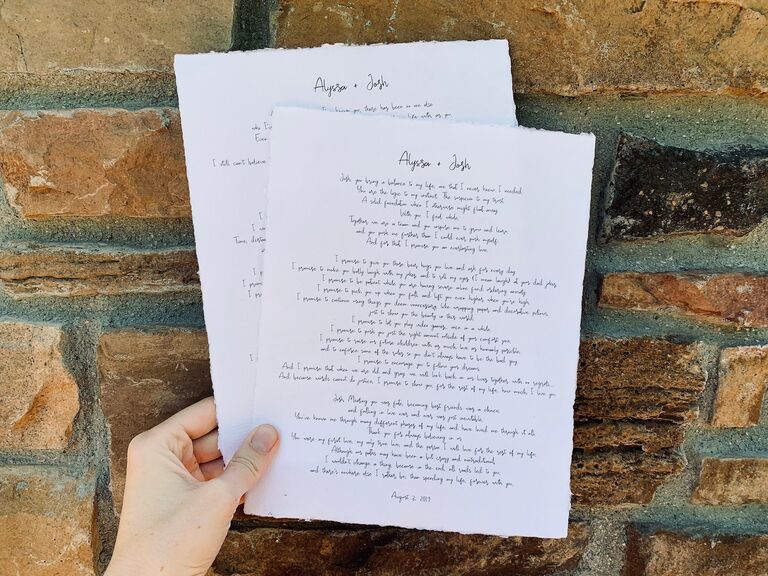 Alyssa + Josh
you, there has been no one else
I still can't believe
Alyssa + Josh
Josh you bring a balance to my life, one that I never knew I needed.
You are the logic to my instinct. The suspicion to my trust.
A solid foundation when I otherwise might float away.
With you, I feel whole.
Together we are a team and you inspire me to grow and learn
and you push me further than I could ever push myself.
And for that I promise you an everlasting love.
I promise to give you those bear hugs you love and ask for every day.
I promise to make you belly laugh with my jokes and to roll my eyes (I mean laugh) at your dad jokes.
I promise to be patient while you are having severe food ordering anxiety.
I promise to pick you up when you fall and lift you even higher when you're high.
I promise to continue using things you deem unnecessary, like wrapping paper and decorative pillows,
just to show you the beauty in this world.
I promise to let you play video games, once in a while.
I promise to push you just the right amount outside of your comfort zone.
I promise to raise our future children with as much love as humanly possible,
and to enforce some of the rules so you don't always have to be the bad guy.
I promise to encourage you to follow your dreams.
And I promise that when we are old and gray we will look back on our lives together with no regrets.
And because words cannot do justice, I promise to show you for the rest of my life, how much I love you.
Josh, Meeting you was fate, becoming best friends was a chance,
and falling in love was and was was just inevitable.
You've known me through many different phases of my life, and have loved me through it all.
Thank you for always believing in us.
You were my first love, my only true love, and the person I will love for the rest of my life.
Although our paths may have been a bit crazy and untraditional,
I wouldn't change a thing, because in the end all roads led to you
and there's nowhere else I rather be, than spending my life, forever with you.
August 2, 2019